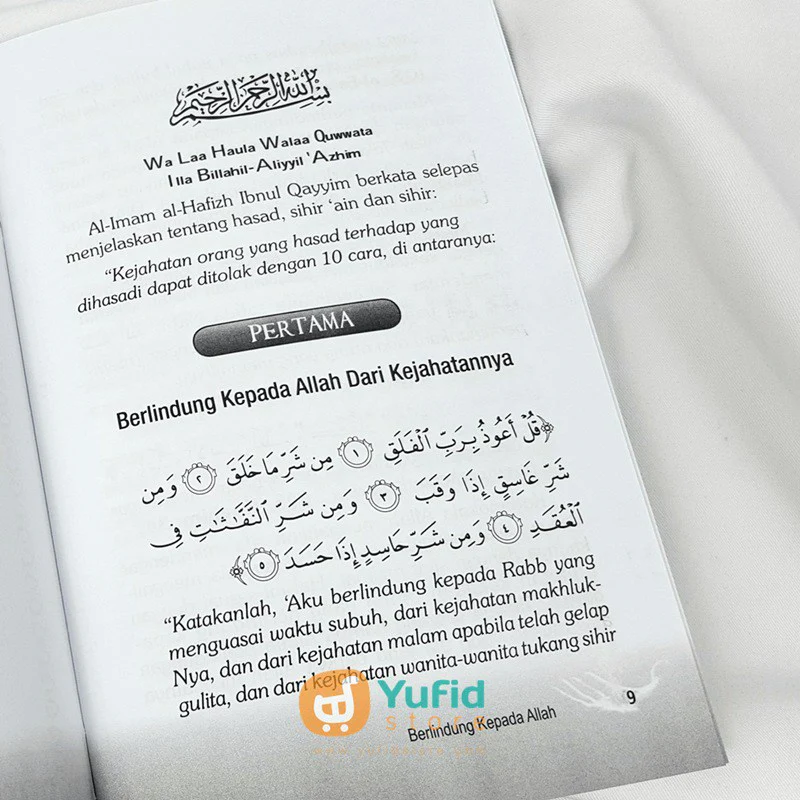 بسم الله الرحمن الرحيم
Wa Laa Haula Walaa Quwwata
Illa Billahil-Aliyyil 'Azhim
Al-Imam al-Hafizh Ibnul Qayyim berkata selepas
menjelaskan tentang hasad, sihir 'ain dan sihir:
"Kejahatan orang yang hasad terhadap yang
dihasadi dapat ditolak dengan 10 cara, di antaranya:
PERTAMA
Berlindung Kepada Allah Dari Kejahatannya
﴿قُلْ أَعُوذُ بِرَبِّ ٱلْفَلَقِ ١ مِن شَرِّ مَا خَلَقَ ٢ وَمِن
شَرِّ غَاسِقٍ إِذَا وَقَبَ ٣ وَمِن شَرِّ ٱلنَّفَّٰثَٰتِ فِى
ٱلْعُقَدِ ٤ وَمِن شَرِّ حَاسِدٍ إِذَا حَسَدَ ٥﴾
"Katakanlah, 'Aku berlindung kepada Rabb yang
menguasai waktu subuh, dari kejahatan makhluk-
Nya, dan dari kejahatan malam apabila telah gelap
gulita, dan dari kejahatan wanita-wanita tukang sihir
Yufid
store
Berlindung Kepada Allah
9